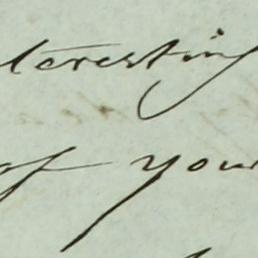 teresting
of your